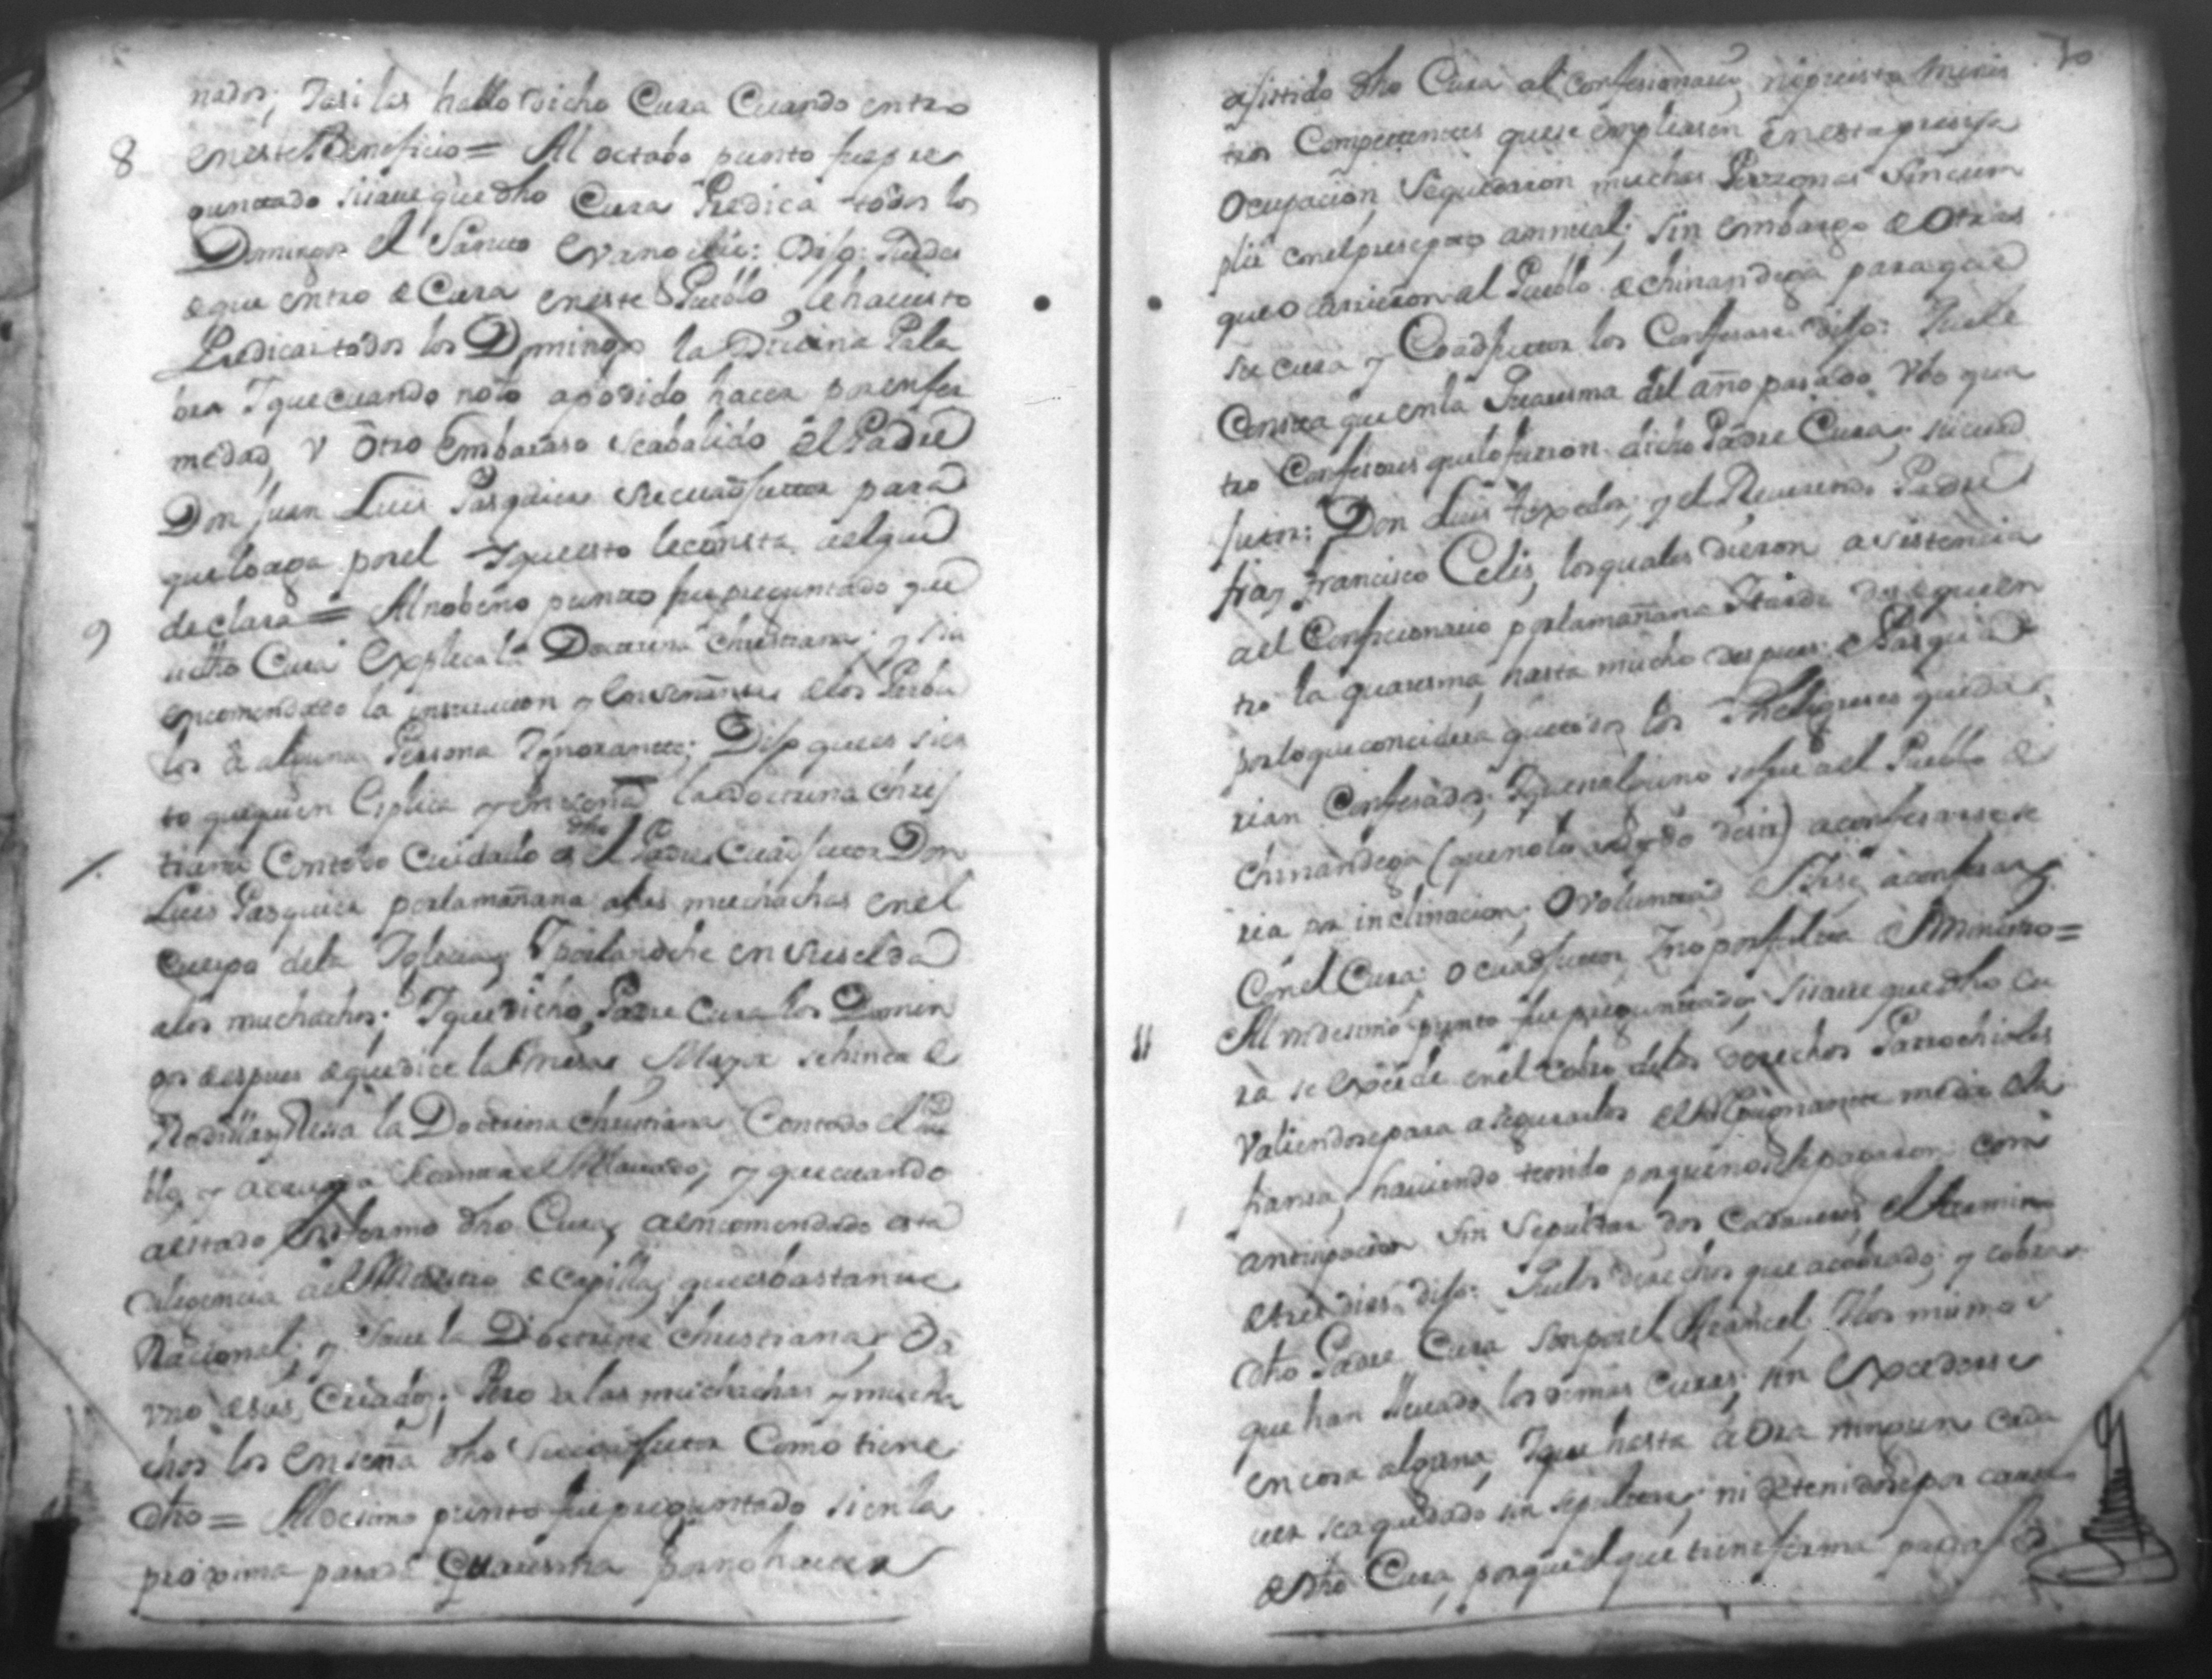 nados; Yasi los hallo dicho Cura Cuando entro
8 eneste Beneficio = Al octabo punto fue pre
guntado sisave que dho Cura Predica todos los
Domingos el Santo Evangelio: Dijo: Desde
que entro de Cura eneste Pueblo le ha visto
Predicar todos los Domingos la Divina Pala
bra Yque cuando nolo apodido hacer por enfer
medad, V Otro embaraso se abalido el Padre
Don Juan Luis Pasquier su cuadjutor para
que lo aga por el Yque esto le consta ael que
9 declara = Al nobeno punto fue preguntado que
si dho Cura Explica la Doctrina Christiana; y si a
encomendado la instruccion y Enseñansa de los Parbu
los â alguna Persona Ygnorante; Dijo que es sier
to que quien Esplica y Enseña la Doctrina Chris
tiana Contodo Cuidado es dho Padre Cuadjutor Don
Luis Pasquier por la mañana alas muchachas en el
Cuerpo dela Yglecia, Y por la noche en su selda
alos muchachos; Y que dicho Padre Cura los Domin
gos despues de que dice la Misa Mayor se hinca de
Rodillas y Resa la Doctrina Christiana Contodo el Pue
blo y acavada Se canta el Alavado; y que cuando
a estado Enfermo dho Cura, a encomendado esta
diligencia ael Maestro de Capilla, que es bastante
Racional; y Save la Doctrina Christiana, O a
uno de sus Criados; Pero a las muchachas y mucha
chos los enseña dho su cuadjutor Como tiene
dho = Al desimo punto fue preguntado si en la
proxima pasada Quaresma por no haver
70
asistido dho Cura al Confesionario, ni previsto Minis
tros Competentes que se empleasen en esta presisa
Ocupacion, Se quedaron muchas Perzonas Sin cum
plir con el presepto annual; Sin embargo de Otras
que ocurrieron al Pueblo de Chinandega para que
su cura y Coadjutor los Confesase dijo: Que le
Consta que en la Quaresma del año pasado Vbo qua
tro Confesores que lo fueron dicho Padre Cura, su cuad
jutor: Don Luis y el Reverendo Padre
fray Francisco Celis, los quales dieron asistencia
ael Confecionario por la mañana Y tarde desde que en
tro la quaresma, hasta mucho despues de Pasqua
por lo que concidera que todos los Feligreses queda
rian Confesados; Y que si alguno se fue ael Pueblo de
Chinandega (que no lo a oydo desir) a confesarse se
ria por inclinacion, O voluntad de Yrse a confesar
Con el Cura o cuadjutor Y no por falta de Ministro =
11 Al undesimo punto fue preguntado Si save que dho Cu
ra se Excede en el Cobro delos derechos Parrochiales
Valiendose para asegurarlos del medio de la
fiansa, haviendo tenido por que no se le pagaron con
antisipacion Sin Sepultar dos Cadaveres el termino
de tres dias. dijo: Que los derechos que a cobrado, y cobra
dho Padre Cura Son por el Arancel Y los mismos
que han llevado los demas Curas; sin Excederse
en cosa alguna, Y que hasta aOra ningun Cada
ver se a quedado sin sepultura; ni detenidose por causa
de dho Cura, porque el que tiene forma paga